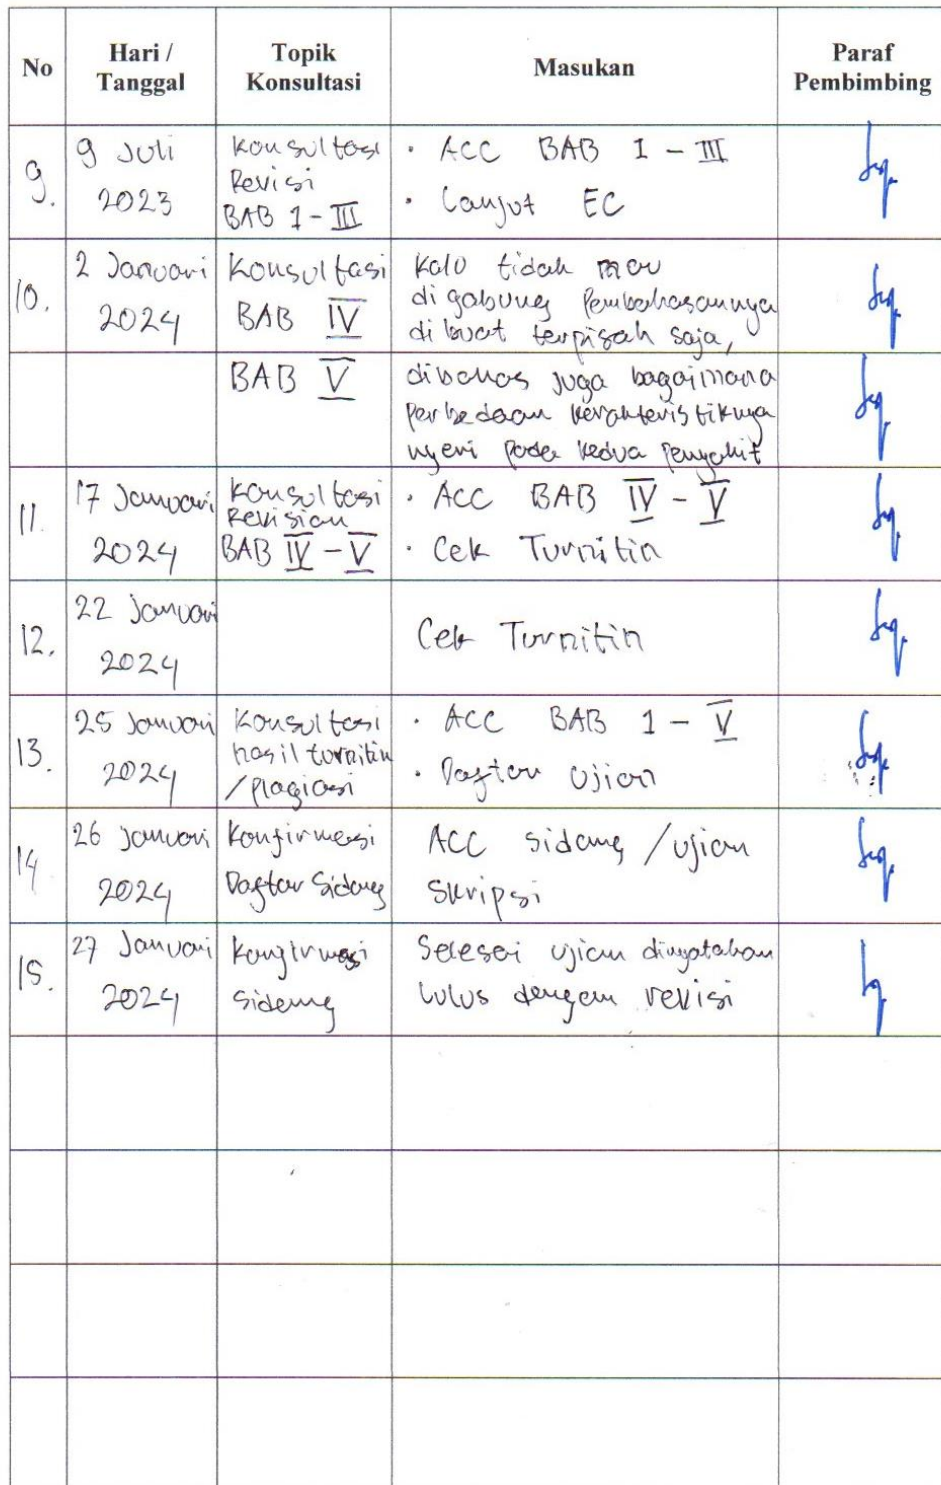 No
Hari /
Tanggal
Topik
Konsultasi
Masukan
Paraf
Pembimbing
9.
9 Juli
2023
Konsultasi
Revisi
BAB 1 - III
· ACC BAB 1 - III
· Lanjut EC
10.
2 Januari
2024
Konsultasi
BAB IV
Kalo tidak mau
digabung Pembahasannya
dibuat terpisah saja,
BAB V
dibahas juga bagaimana
perbedaan kerakteristiknya
nyeri pada kedua penyakit
11.
17 Januari
2024
Konsultasi
Revisian
BAB IV - V
· ACC BAB IV - V
· Cek Turnitin
12.
22 Januari
2024
Cek Turnitin
13.
25 Januari
2024
Konsultasi
hasil turnitin
/plagiasi
· ACC BAB 1 - V
· Daftar Ujian
14
26 Januari
2024
Konfirmasi
Daftar Sidang
ACC sidang / ujian
Skripsi
15.
27 Januari
2024
Konfirmasi
Sidang
Selesai ujian dinyatakan
lulus dengan revisi